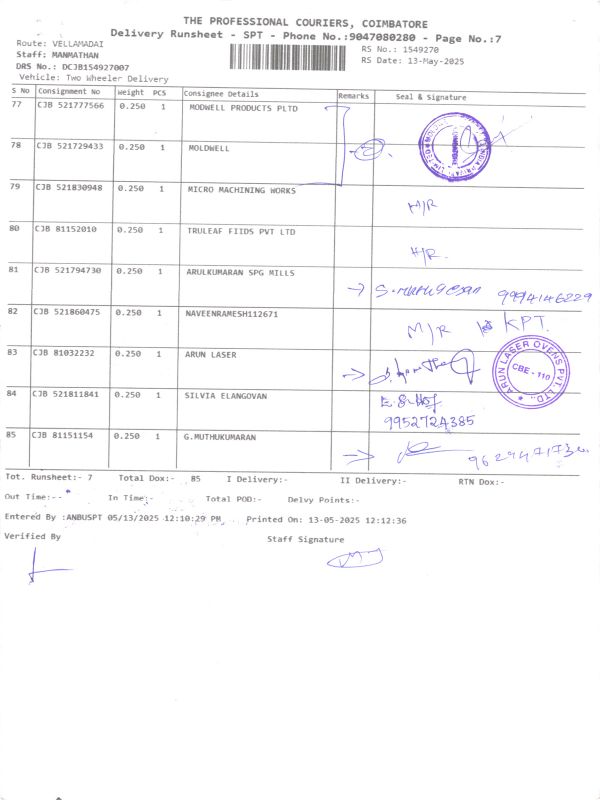 THE PROFESSIONAL COURIERS, COIMBATORE
Delivery Runsheet - SPT - Phone No.:9047080280 - Page No.:7
Route: VELLAMADAI
RS No.: 1549270
Staff: MANMATHAN
RS Date: 13-May-2025
DRS No.: DCJB154927007
Vehicle: Two Wheeler Delivery
S No Consignment No Weight PCS Consignee Details Remarks Seal & Signature
77 CJB 521777566 0.250 1 MODWELL PRODUCTS PLTD
78 CJB 521729433 0.250 1 MOLDWELL
79 CJB 521830948 0.250 1 MICRO MACHINING WORKS M/R
80 CJB 81152010 0.250 1 TRULEAF FIIDS PVT LTD H/R.
81 CJB 521794730 0.250 1 ARULKUMARAN SPG MILLS 9994146229
82 CJB 521860475 0.250 1 NAVEENRAMESH112671 M/R KPT.
83 CJB 81032232 0.250 1 ARUN LASER ARUN LASER OVENS PVT. LTD., CBE - 110
84 CJB 521811841 0.250 1 SILVIA ELANGOVAN 9952724385
85 CJB 81151154 0.250 1 G.MUTHUKUMARAN
Tot. Runsheet:- 7 Total Dox:- 85 I Delivery:- II Delivery:- RTN Dox:-
Out Time:-- In Time:- Total POD:- Delvy Points:-
Entered By :ANBUSPT 05/13/2025 12:10:29 PM Printed On: 13-05-2025 12:12:36
Verified By Staff Signature